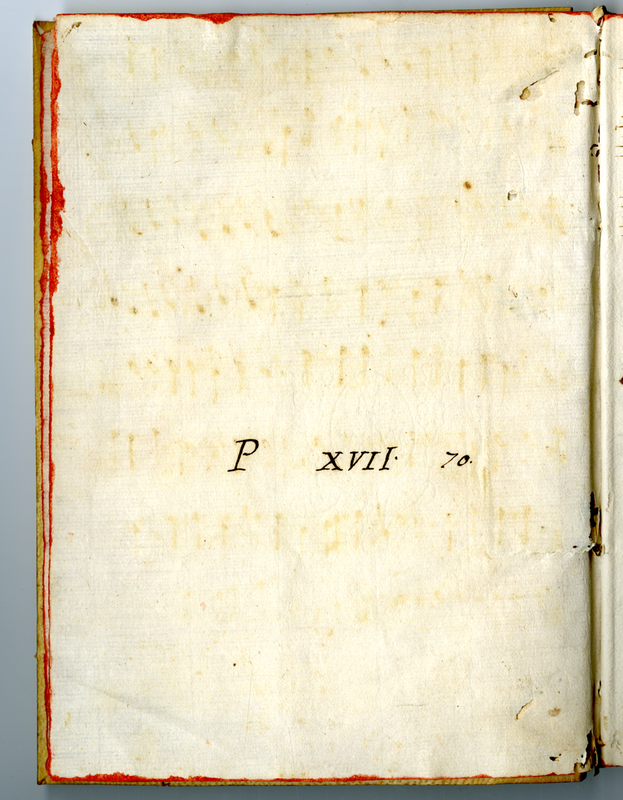 P XVII. 70.